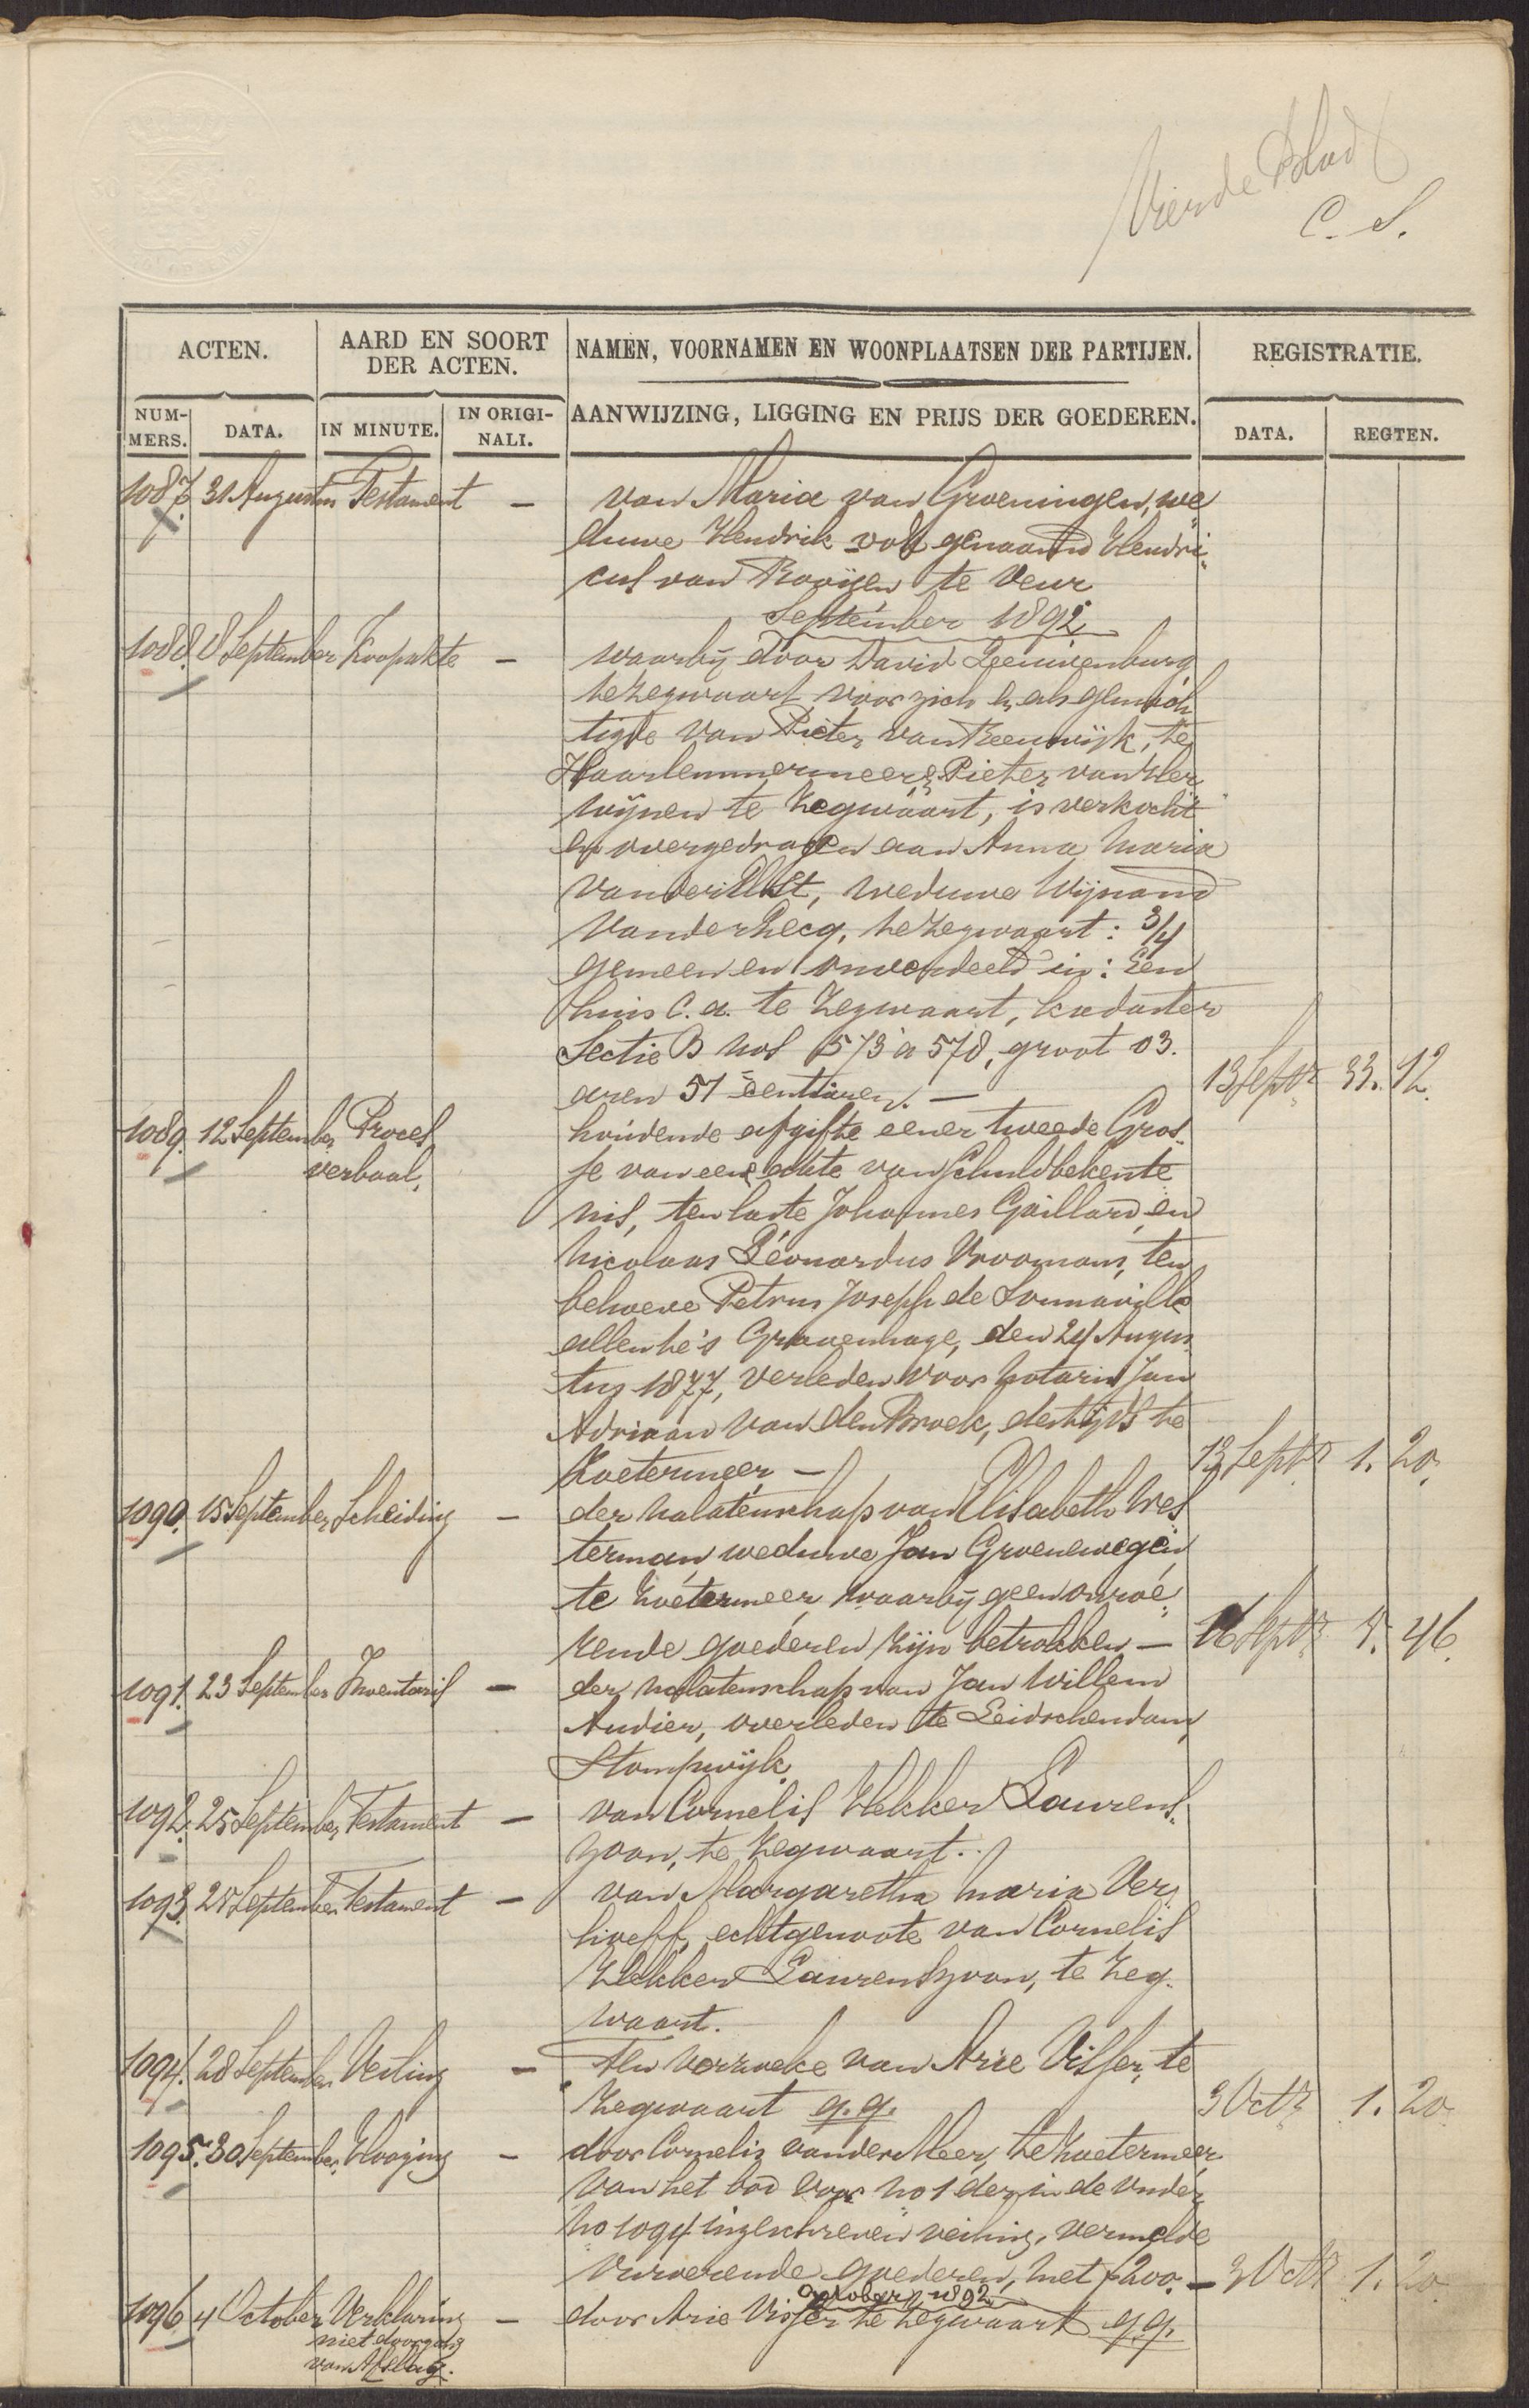 Vierde Blad
C. S.
ACTEN.
AARD EN SOORT DER ACTEN.
NAMEN, VOORNAMEN EN WOONPLAATSEN DER PARTIJEN.
REGISTRATIE.
NUM-MERS.
DATA.
IN MINUTE.
IN ORIGI-NALI.
AANWIJZING, LIGGING EN PRIJS DER GOEDEREN.
DATA.
REGTEN.
1087. 31 Augustus Testament — van Maria van Groeningen, we
duwe Hendrik ook genaamd Hendri
cus van Rooijen te Veur
September 1892.
1088. 8 September Koopakte — waarbij door David Leeuwenburg
te Zegwaart voor zich & als gemach
tigde van Pieter van Reeuwijk, te
Haarlemmermeer & Pieter van Her
wijnen te Zegwaart, is verkocht
en overgedragen aan Anna Maria
van der Elst, weduwe Wijnand
van der Hecq, te Zegwaart: 3/4
gemeen en onverdeeld in: Een
huis c.a. te Zegwaart, kadaster
Sectie B nos 573 a 578, groot 03.
aren 51 centiaren. — 13 Septr 33. 12.
1089. 12 September Proces houdende afgifte eener tweede Gros
verbaal, se van eene akte van Schuldbekente
nis, ten laste Johannes Gaillard en
Nicolaas Leonardus Vroomans, ten
behoeve Petrus Joseph de Sonnaville
allen te 's Gravenhage, den 24 Augus
tus 1877, verleden voor Notaris Jan
Adriaan van den Broek, destijds te
Zoetermeer — 13 Septr 1. 20.
1090. 15 September Scheiding — der nalatenschap van Elisabeth Wes
terman, weduwe Jan Groenewegen
te Zoetermeer, waarbij geen onroe
rende goederen zijn betrokken — 16 Septr 7. 46.
1091. 23 September Inventaris — der nalatenschap van Jan Willem
Andier, overleden te Leidschendam,
Stompwijk.
1092. 25 September Testament — van Cornelis Hekker Laurens
zoon, te Zegwaart.
1093. 25 September Testament — van Margaretha Maria Ver
hoeff, echtgenoote van Cornelis
Hekker Laurenszoon, te Zeg
waart.
1094. 28 September Veiling — Ten verzoeke van Arie Visser, te
Zegwaart q.q. 3 Octr 1. 20
1095. 30 September Hooging — door Cornelis van der Meer, te Zoetermeer
van het bod voor no 1 der in de onder
no 1094 ingeschreven veiling, vermelde
onroerende goederen, met f 200. — 3 Octr 1. 20
October 1892
1096. 4 October Verklaring — door Arie Visser te Zegwaart q.q.
niet doorgang
van Afslag.